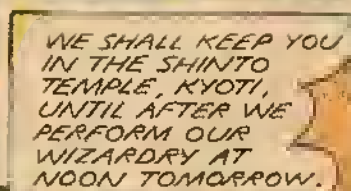 WE SHALL KEEP YOU
IN THE SHINTO
TEMPLE, KYOTI,
UNTIL AFTER WE
PERFORM OUR
WIZARDRY AT
NOON TOMORROW.